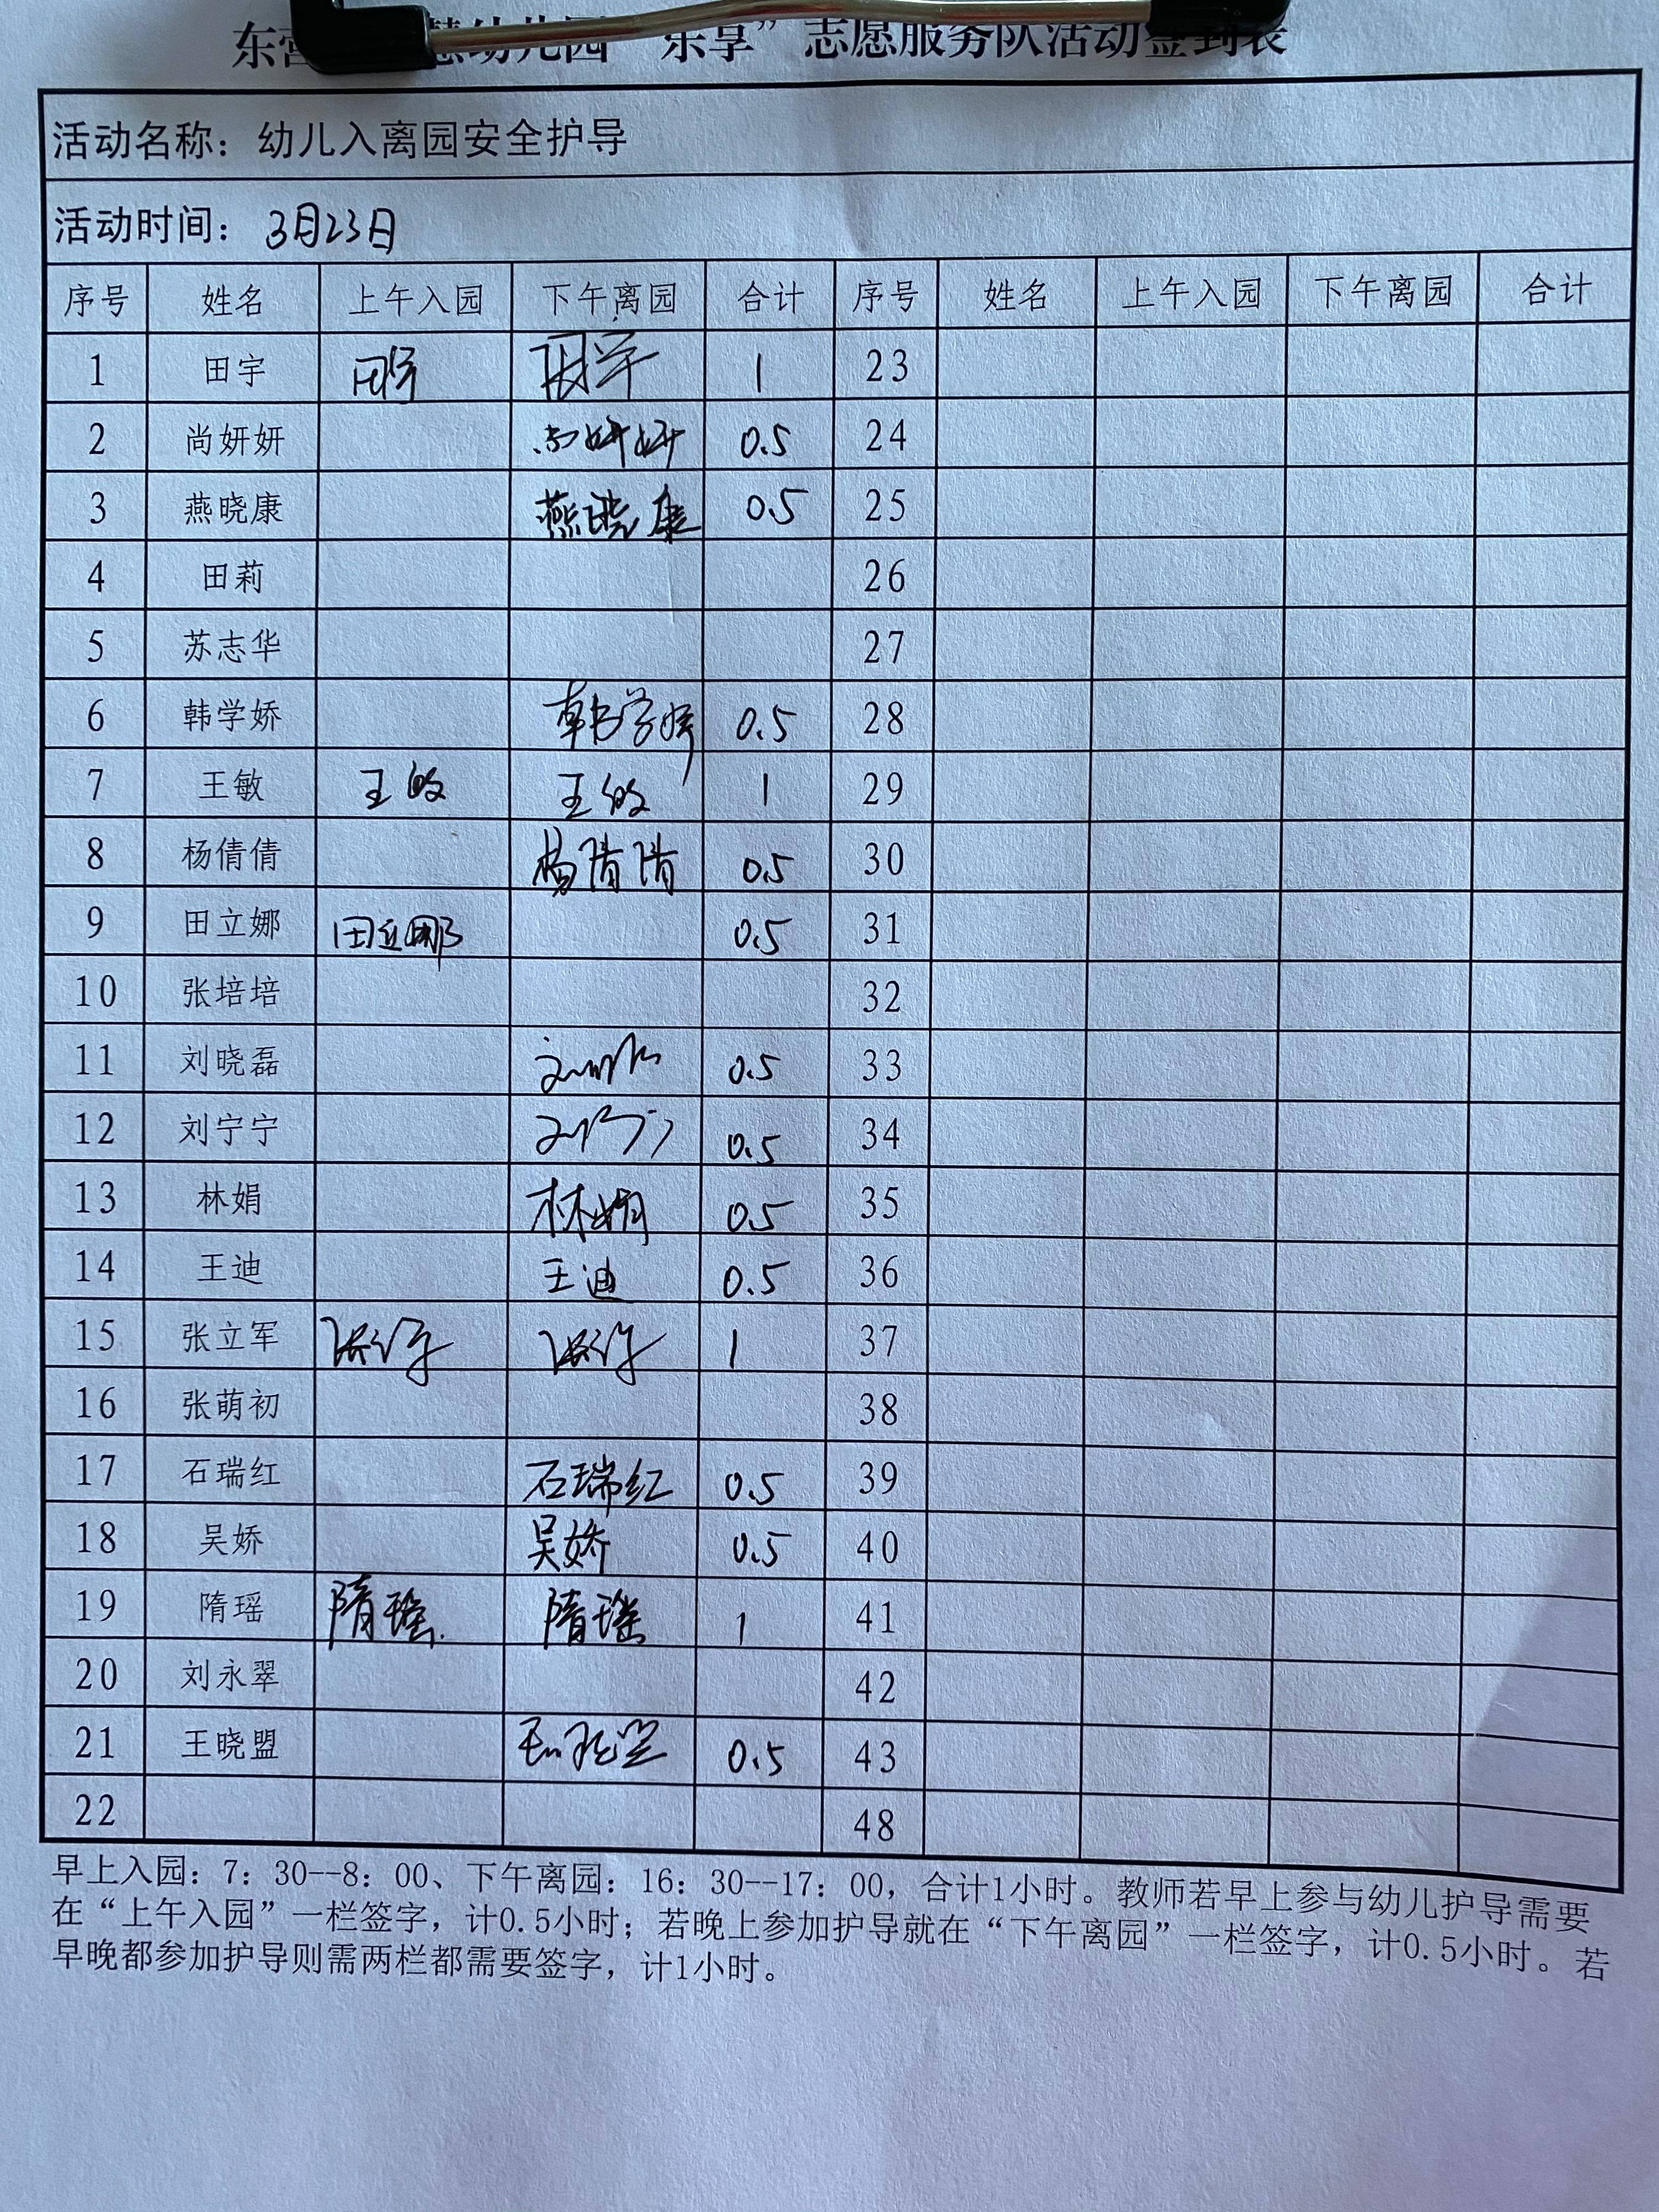 东营 慧幼儿园“乐享”志愿服务队活动签到表
活动名称：幼儿入离园安全护导
活动时间：3月23日
序号 姓名 上午入园 下午离园 合计 序号 姓名 上午入园 下午离园 合计
1 田宇 田宇 田宇 1 23
2 尚妍妍 尚妍妍 0.5 24
3 燕晓康 燕晓康 0.5 25
4 田莉 26
5 苏志华 27
6 韩学娇 韩学娇 0.5 28
7 王敏 王敏 王敏 1 29
8 杨倩倩 杨倩倩 0.5 30
9 田立娜 田立娜 0.5 31
10 张培培 32
11 刘晓磊 刘晓磊 0.5 33
12 刘宁宁 刘宁宁 0.5 34
13 林娟 林娟 0.5 35
14 王迪 王迪 0.5 36
15 张立军 张立军 张立军 1 37
16 张萌初 38
17 石瑞红 石瑞红 0.5 39
18 吴娇 吴娇 0.5 40
19 隋瑶 隋瑶 隋瑶 1 41
20 刘永翠 42
21 王晓盟 王晓盟 0.5 43
22 48
早上入园：7：30--8：00、下午离园：16：30--17：00，合计1小时。教师若早上参与幼儿护导需要
在“上午入园”一栏签字，计0.5小时；若晚上参加护导就在“下午离园”一栏签字，计0.5小时。若
早晚都参加护导则需两栏都需要签字，计1小时。